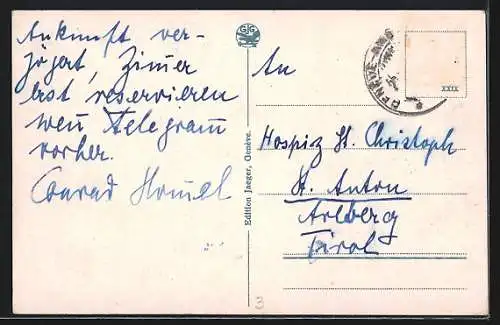 Ankunft ver-
zögert, Zimmer
erst reservieren
wen Telegram
vorher.
Conrad
GJG
Edition Jaeger, Genève.
GENÈVE
XXIX
An
Hospiz St. Christoph
St. Anton
Arlberg
Tirol
3